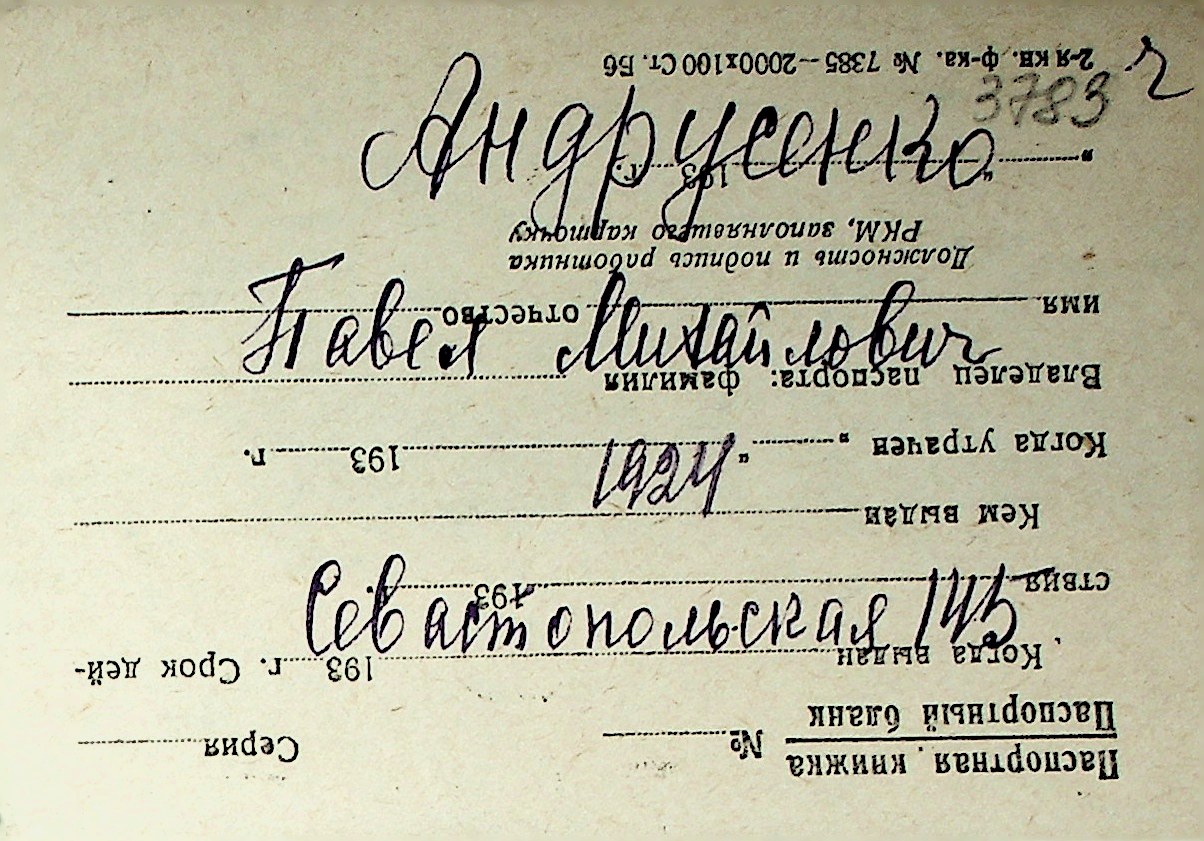 3783
Андрусенко
Павел Михайлович
1924
Севастопольская 145
Паспортная книжка
Паспортный бланк № Серия
Когда выдан 193 г. Срок дей-
ствия 193 г.
Кем выдан
Когда утрачен „ “ 193 г.
Владелец паспорта: фамилия
имя отчество
Должность и подпись работника
РКМ, заполнявшего карточку
„ “ 193 г.
2-я кв. ф-ка. № 7385—2000х100 Ст. Бб